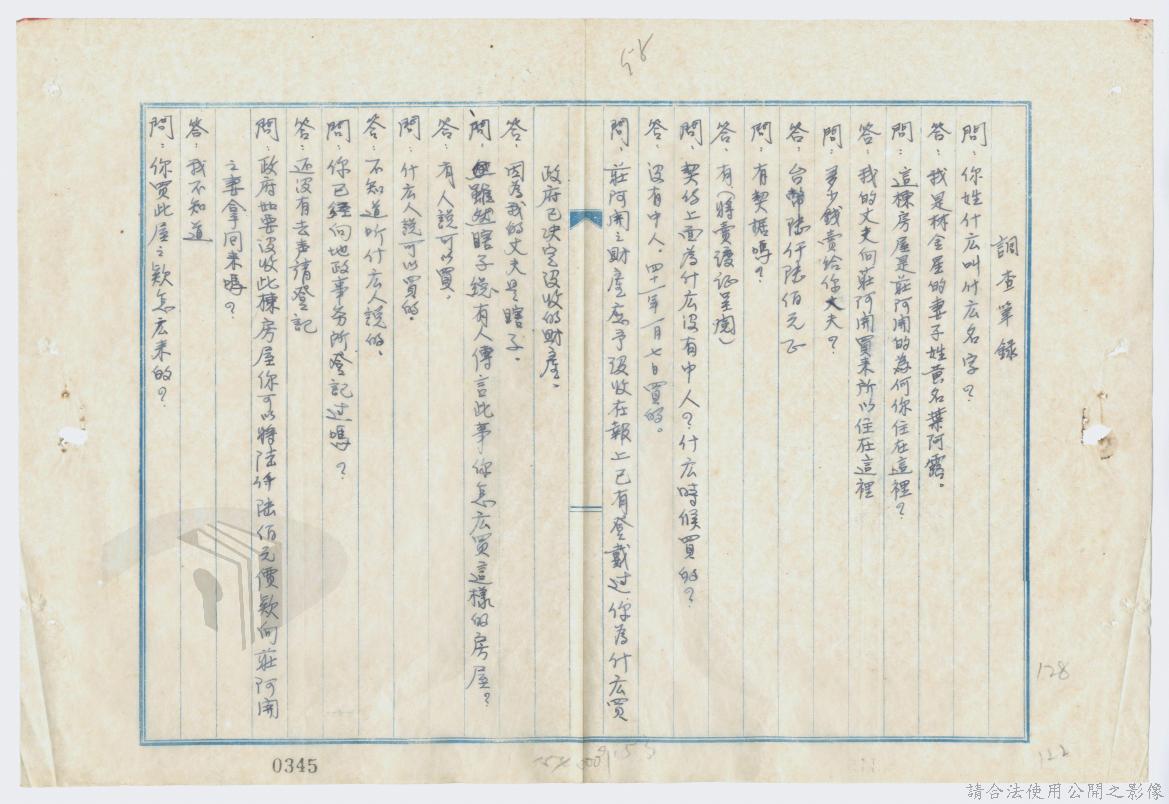 調查筆錄
問：你姓什広叫什広名字？
答：我是林金星的妻子姓黄名葉阿露。
問：這棟房屋是莊阿開的為何你住在這裡？
答：我的丈夫向莊阿開買来所以住在這裡
問：多少錢賣給你丈夫？
答：台幣陸仟陸佰元正
問：有契据嗎？
答：有（將賣渡証呈閱）
問：契約上面為什広没有中人？什広時候買的？
答：没有中人，四十一年一月七日買的。
問：莊阿開之財産應予没收在報上已有登戴过你為什広買
政府已决定没收的財産。
答：因為我的丈夫是瞎子。
問：雖然瞎子總有人傳言此事你怎広買這樣的房屋？
答：有人說可以買。
問：什広人說可以買的。
答：不知道听什広人說的。
問：你已經向地政事务所登記过嗎？
答：还没有去声請登記
問：政府如要没收此棟房屋你可以將陸仟陸佰元價欵向莊阿開
之妻拿回来嗎？
答：我不知道
問：你買此屋之欵怎広来的？
58
128
122
0345
請合法使用公開之影像